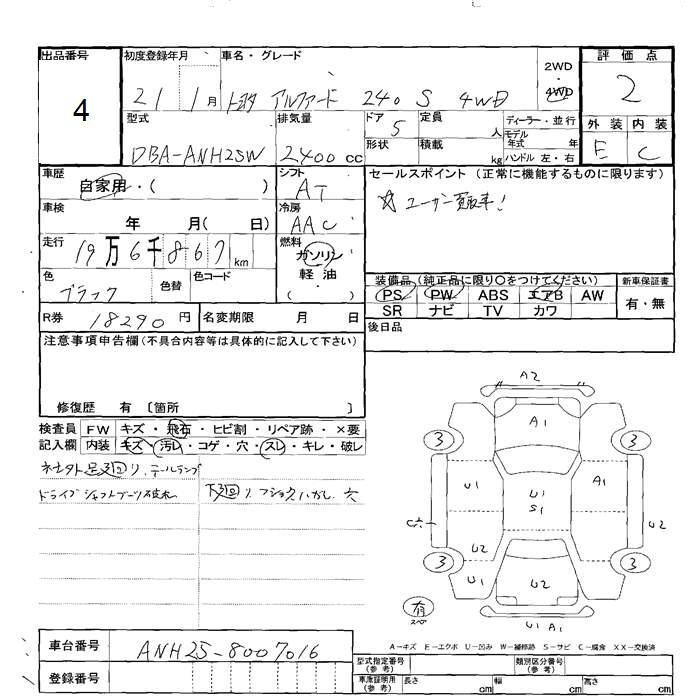 出品番号 初度登録年月 車名・グレード 2WD・4WD 評価点
4 21 1月 トヨタ アルファード 240 S 4WD 2
型式 排気量 ドア 定員 ディーラー・並行 外装 内装
DBA-ANH25W 2400cc 5 人 モデル年式 年 E C
形状 積載 kg ハンドル 左・右
車歴 自家用・( ) シフト AT セールスポイント(正常に機能するものに限ります)
☆ ユーザー買取車!
車検 年 月( 日) 冷房 AAC
走行 19万6千867km 燃料 ガソリン 軽油 ( )
色 ブラック 色替 色コード
装備品(純正品に限り○をつけてください) 新車保証書
PS PW ABS エアB AW 有・無
SR ナビ TV カワ
R券 18290円 名変期限 月 日 後日品
注意事項申告欄(不具合内容等は具体的に記入して下さい)
修復歴 有 〔箇所 〕
検査員 FW キズ・飛石・ヒビ割・リペア跡・×要
記入欄 内装 キズ・汚レ・コゲ・穴・スレ・キレ・破レ
足廻り、テールランプ
ドライブシャフトブーツ 下廻り
A2
A1
3 3
U1 U1 S1 A1
U2 U2
3 3
U1 U2
有
スペ
U1 A1
A-キズ E-エクボ U-凹み W-補修跡 S-サビ C-腐食 XX-交換済
車台番号 ANH25-8007016
登録番号
型式指定番号(参考) 類別区分番号(参考)
車庫証明用(参考) 長さ cm 幅 cm 高さ cm